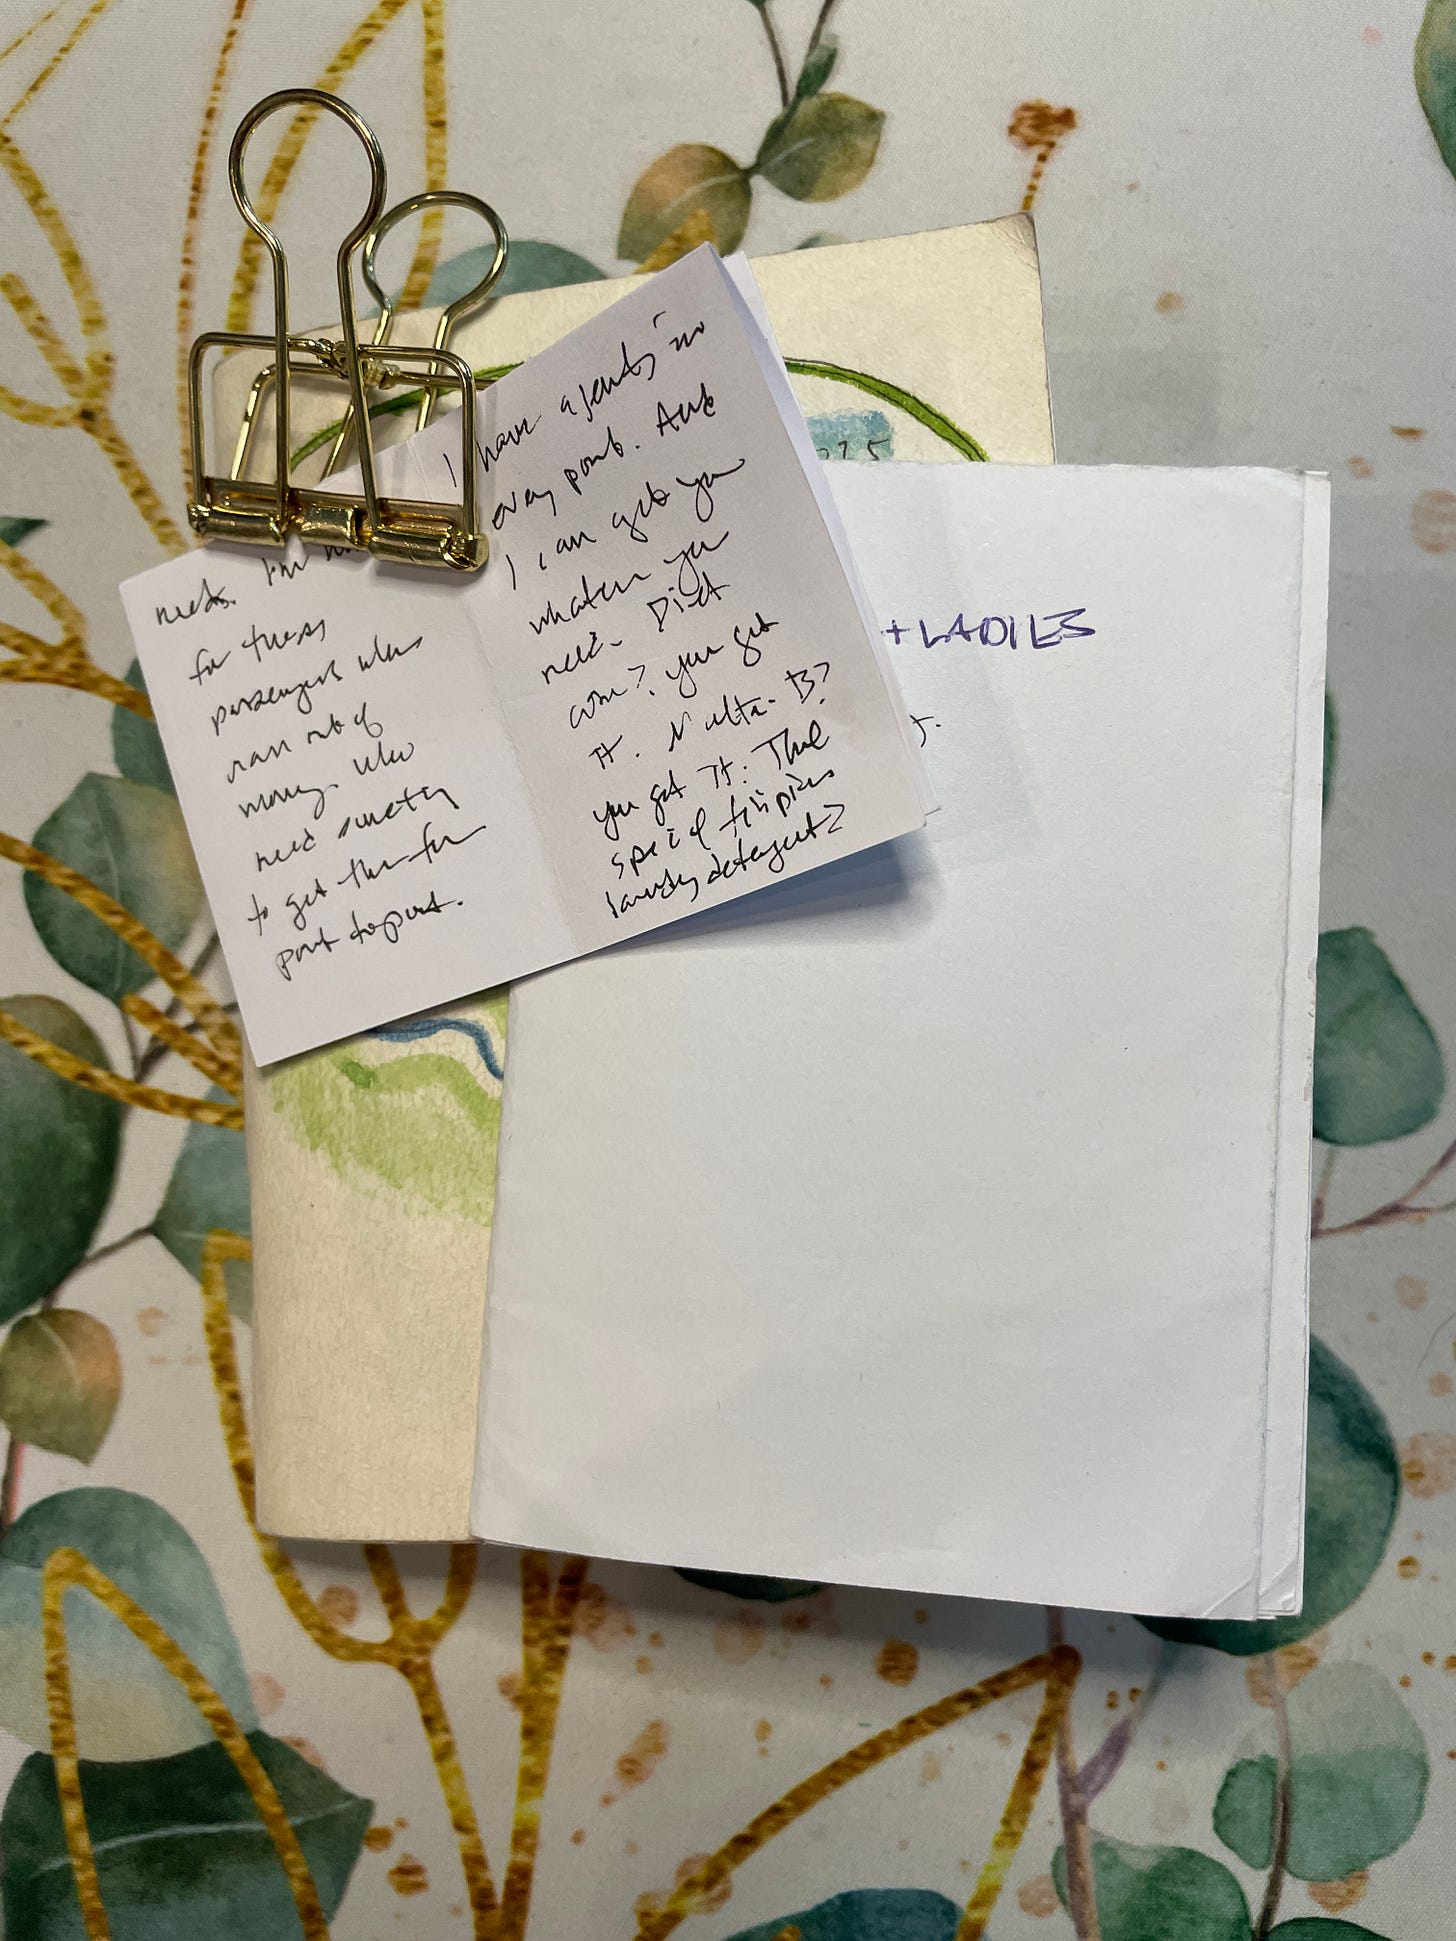 needs. I'm
for those
passengers who
ran out of
money. Who
need something
to get them from
port to port.
I have agents in
every port. And
I can get you
whatever you
need. Diet
you get
it. Nutri-B?
you get it. That
special
laundry detergent?
225
+ LADIES